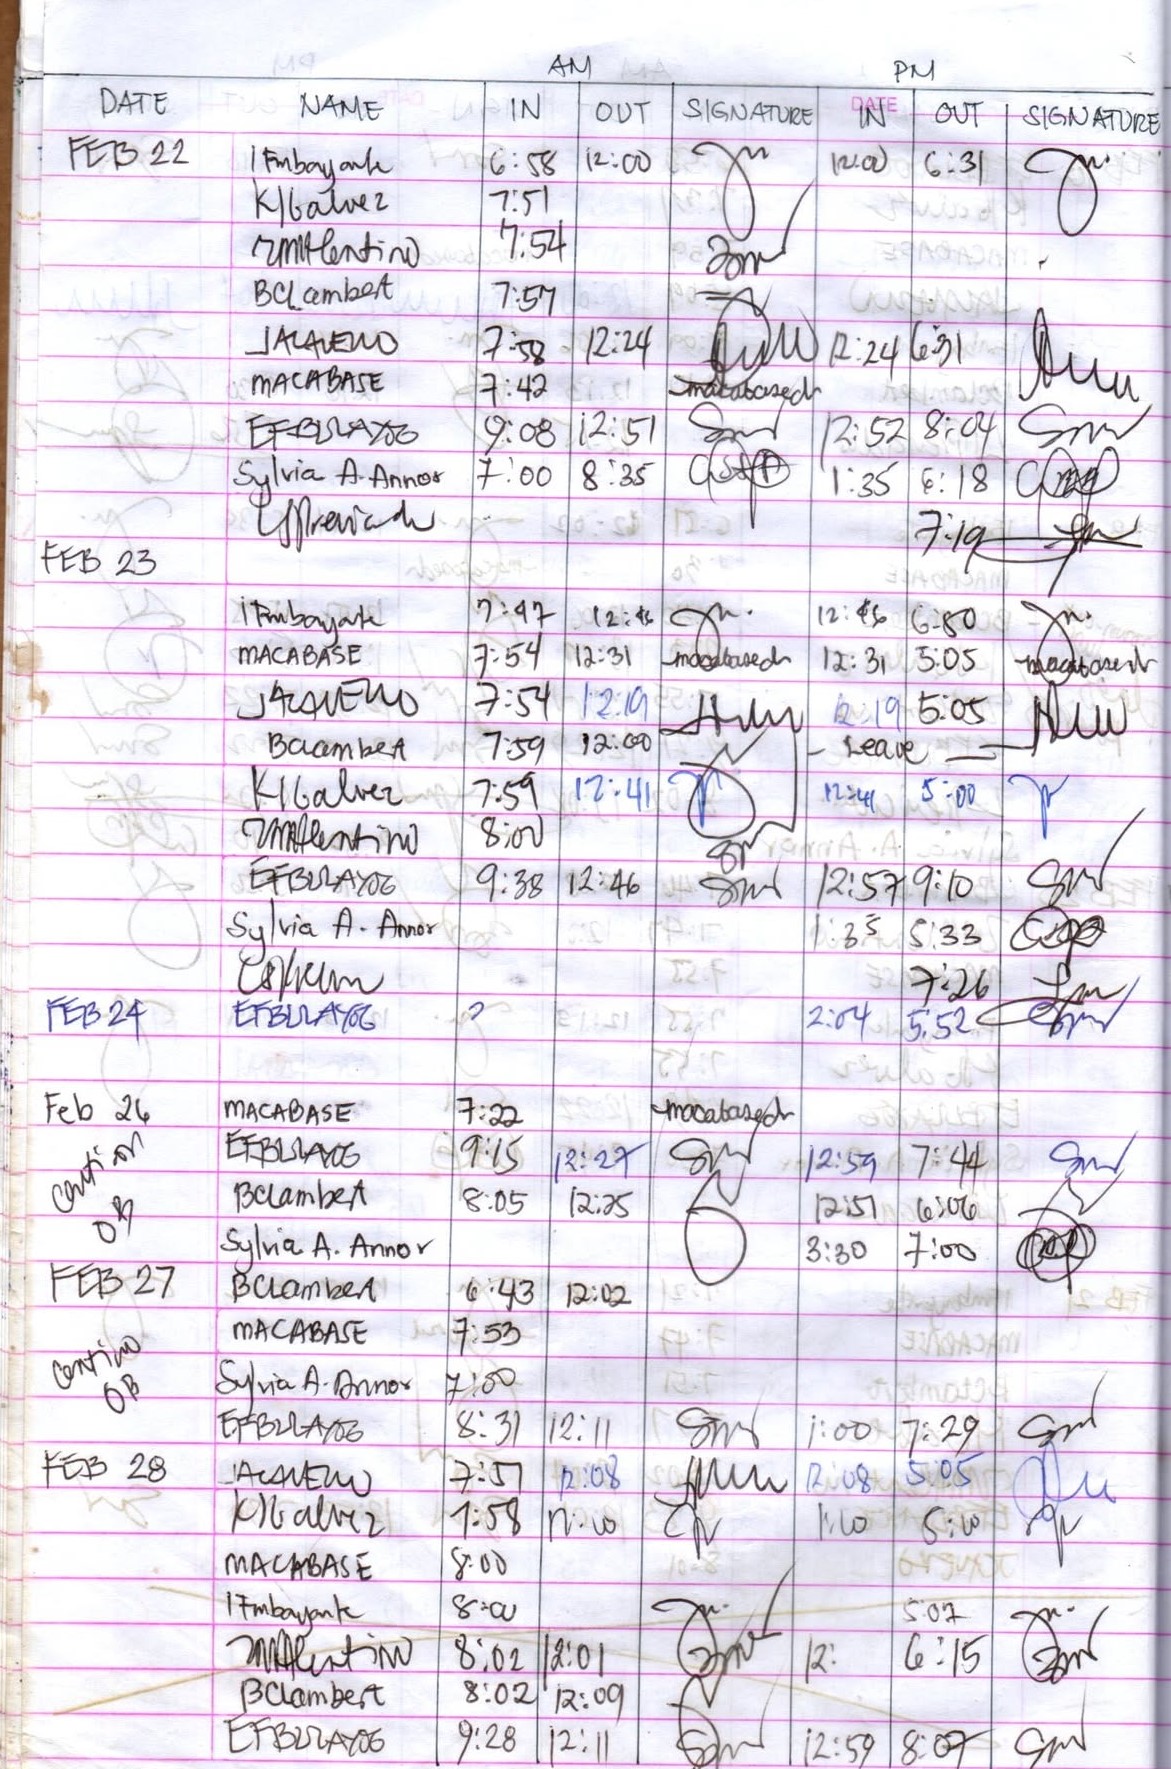 AM PM
DATE NAME IN OUT SIGNATURE DATE IN OUT SIGNATURE
FEB 22 IFmbayank 6:58 12:00 12:00 6:31
KIGalvez 7:51
7:54
BCLambert 7:57
JALAVENO 7:58 12:24 12:24 6:31
MACABASE 7:42 macabasedr
EFBULAYOG 9:08 12:51 12:52 8:04
Sylvia A. Annor 7:00 8:35 1:35 6:18
7:19
FEB 23
IFmbayank 7:47 12:46 12:46
MACABASE 7:54 12:31 macabasedr 12:31 5:05 macabasedr
JALAVENO 7:54 12:19 12:19 5:05
BCLambert 7:59 12:00 - Leave -
KIGalvez 7:59 12:41 12:41 5:00
8:00
EFBULAYOG 9:38 12:46 12:57 9:10
Sylvia A. Annor 1:35 5:33
7:26
FEB 24 EFBULAYOG ? 2:04 5:52
Feb 26 MACABASE 7:22 macabasedr
EFBULAYOG 9:15 12:27 12:59 7:44
OB BCLambert 8:05 12:25 12:51 6:06
Sylvia A. Annor 3:30 7:00
FEB 27 BCLambert 6:43 12:02
MACABASE 7:53
OB Sylvia A. Annor 7:00
EFBULAYOG 8:31 12:11 1:00 7:29
FEB 28 JALAVENO 7:57 12:08 12:08 5:05
KIGalvez 7:58 1:10 5:10
MACABASE 8:00
IFmbayank 8:00 5:07
8:02 12:01 12: 6:15
BCLambert 8:02 12:09
EFBULAYOG 9:28 12:11 12:59 8:07